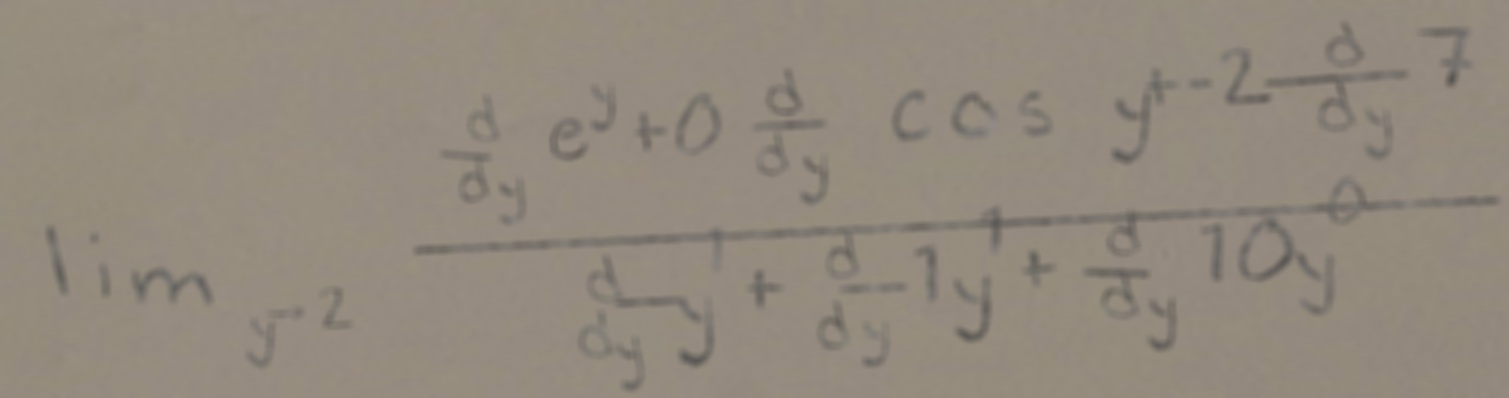 lim_{y→2} \frac{\frac{d}{dy} e^y + 0 \frac{d}{dy} cos y + -2 \frac{d}{dy} 7}{\frac{d}{dy} y^1 + \frac{d}{dy} 1y^1 + \frac{d}{dy} 10y^0}